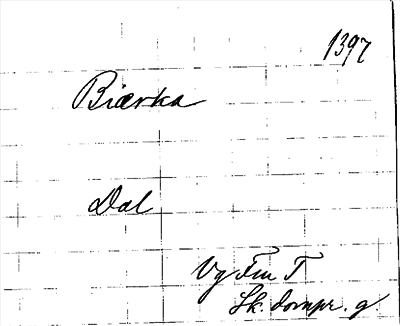 1397
Biærka
Dal
Vg Fm T
Sk. dompr. g